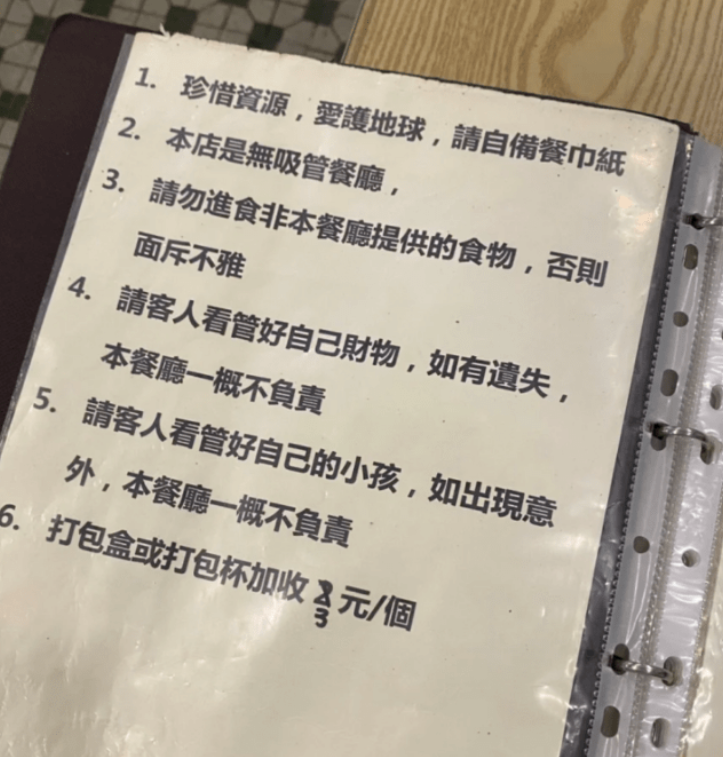 1. 珍惜資源，愛護地球，請自備餐巾紙
2. 本店是無吸管餐廳，
3. 請勿進食非本餐廳提供的食物，否則
面斥不雅
4. 請客人看管好自己財物，如有遺失，
本餐廳一概不負責
5. 請客人看管好自己的小孩，如出現意
外，本餐廳一概不負責
6. 打包盒或打包杯加收 3 元/個